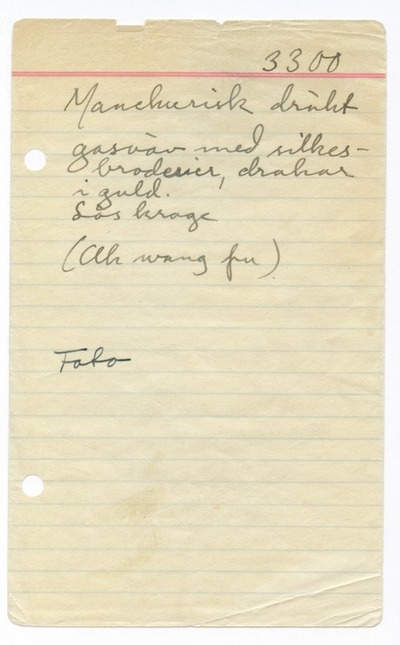 3300
Manchurisk dräkt
gasväv med silkes-
broderier, drakar
i guld.
Lös krage
(Ah wang fu)
Foto